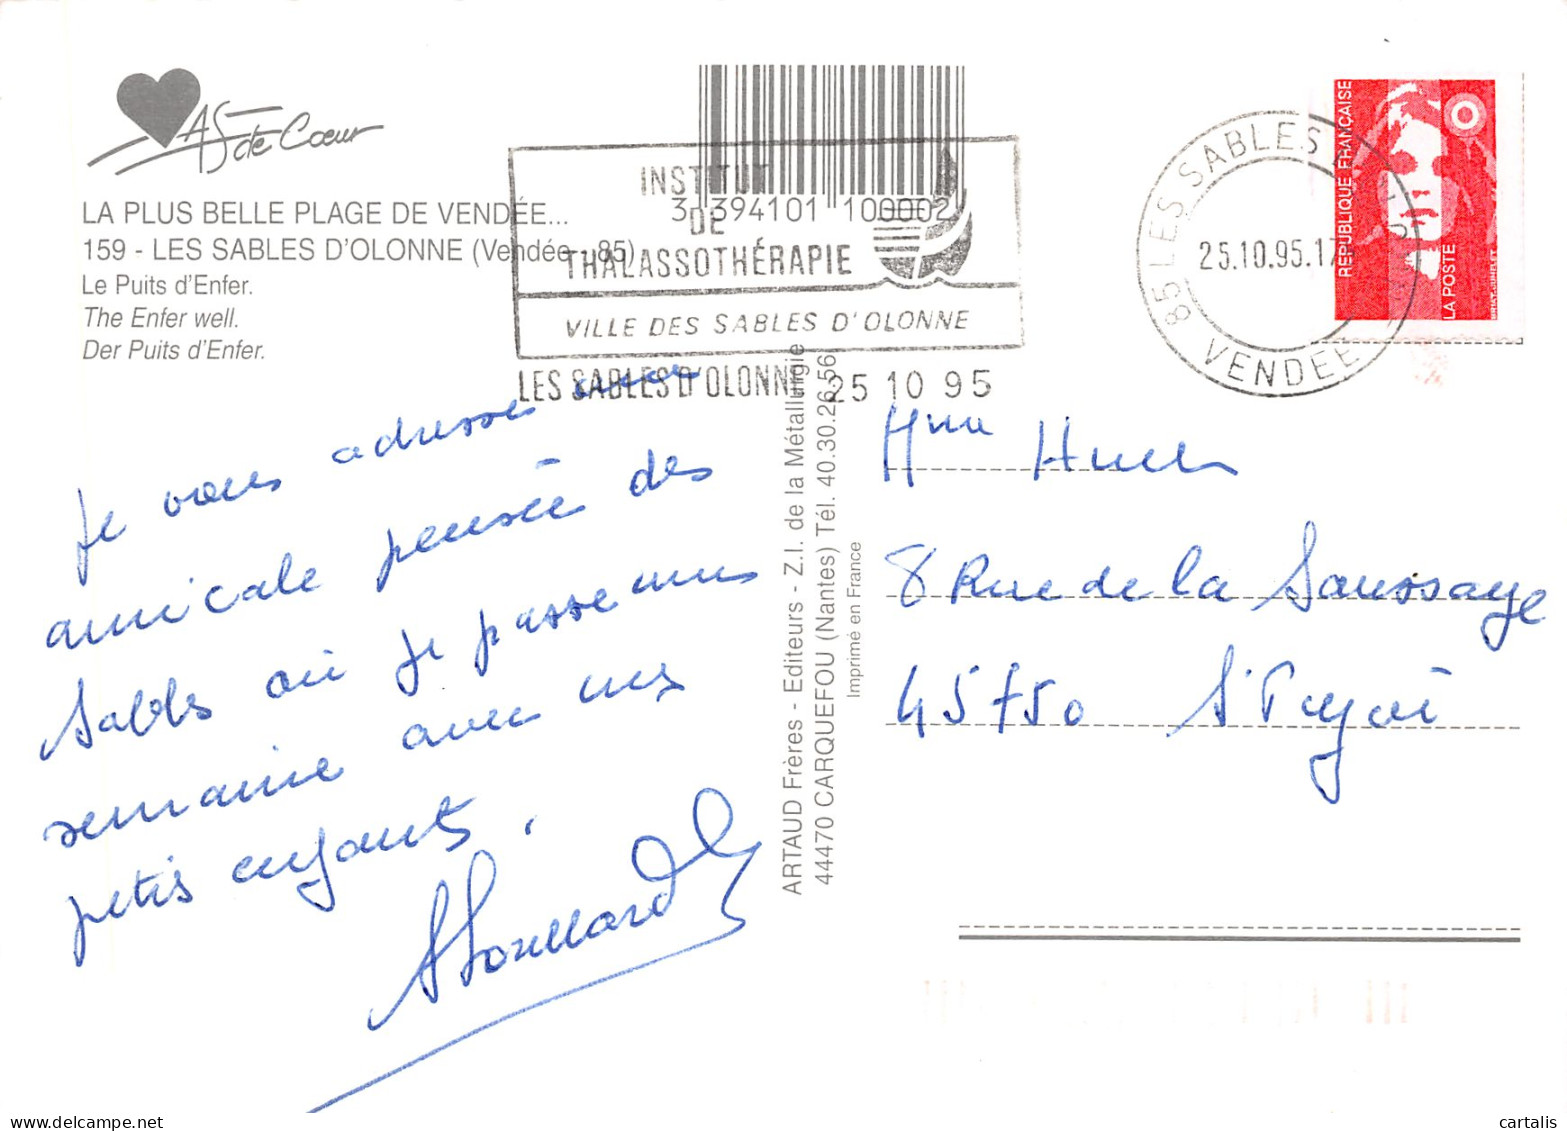 As de Cœur
LA PLUS BELLE PLAGE DE VENDÉE...
159 - LES SABLES D'OLONNE (Vendée - 85)
Le Puits d'Enfer.
The Enfer well.
Der Puits d'Enfer.
3 394101 100002
INSTITUT
DE
THALASSOTHÉRAPIE
VILLE DES SABLES D'OLONNE
LES SABLES D'OLONNE 25 10 95
85 LES SABLES
25.10.95.17
VENDEE
REPUBLIQUE FRANCAISE
LA POSTE
Je vous adresse une
amicale pensée des
Sables où je passe une
semaine avec mes
petis enfants.
ARTAUD Frères - Editeurs - Z.I. de la Métallurgie
44470 CARQUEFOU (Nantes) Tél. 40.30.26.56
Imprimé en France
Mme
8 Rue de la Saussaye
45750 St Pryvé
cartalis